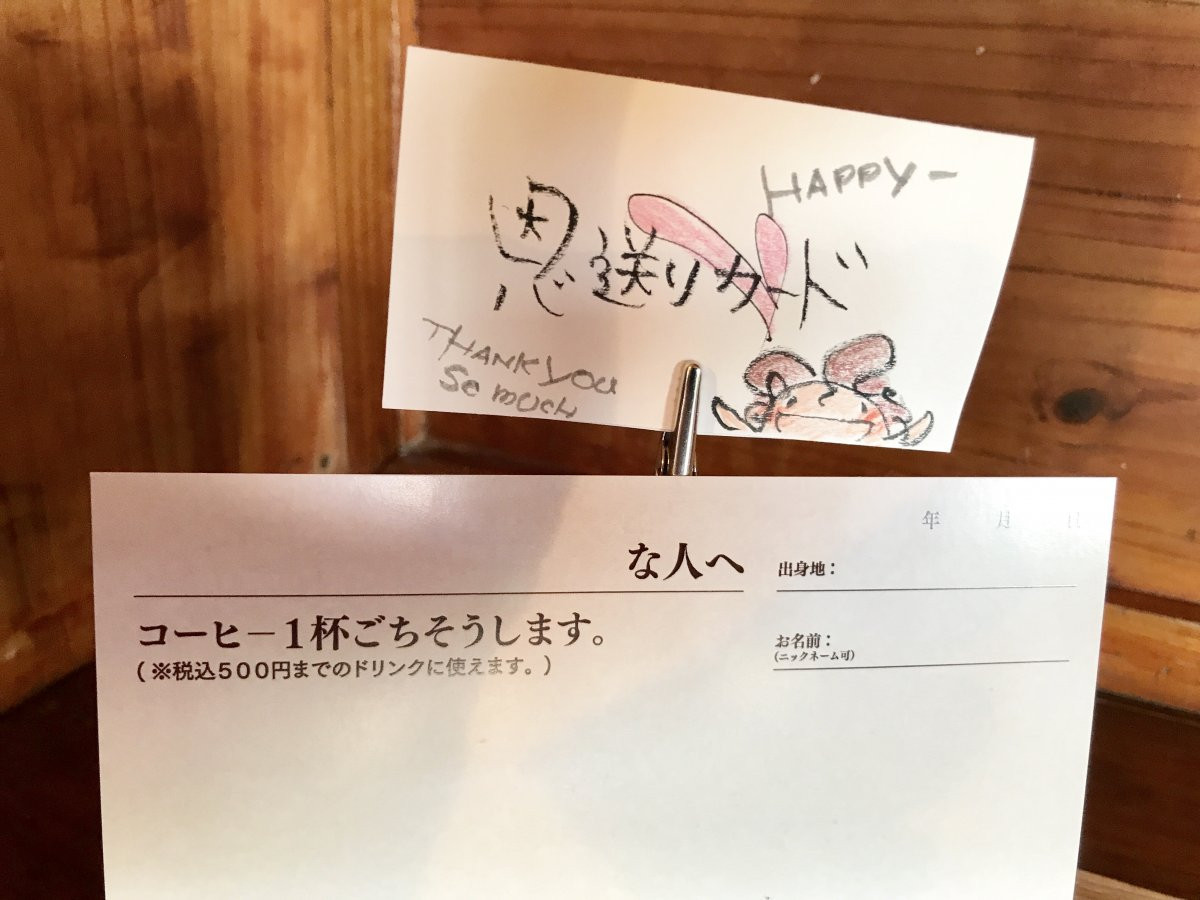 HAPPY-
恩送りカード
THANK YOU
SO MUCH
年 月 日
な人へ
出身地：
コーヒー1杯ごちそうします。
お名前：
(ニックネーム可)
(※税込500円までのドリンクに使えます。)